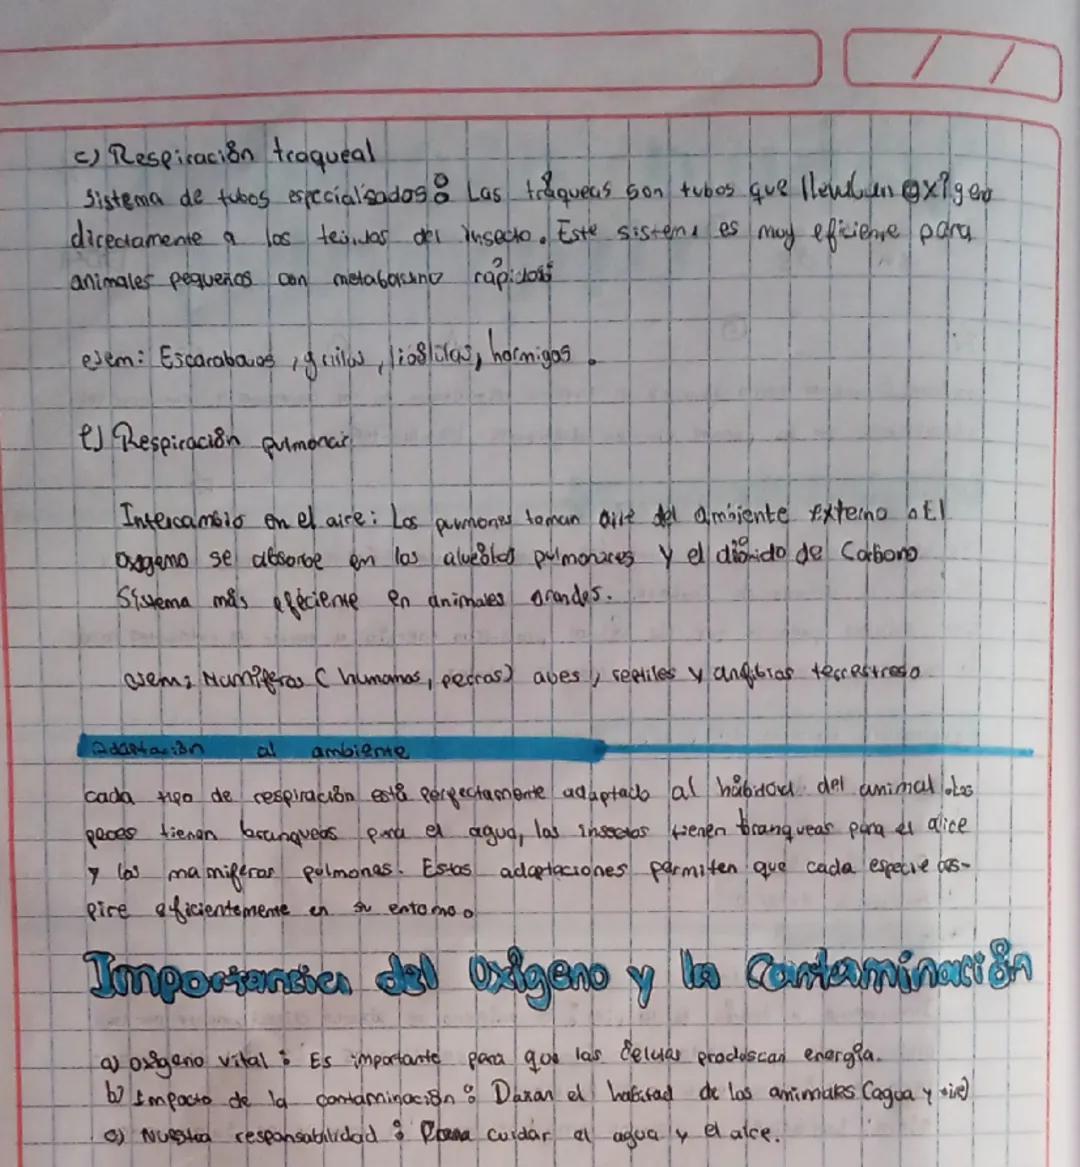 c) Respiración traqueal
Sistema de tubos especialisados: Las tráqueas son tubos que llevan oxígeno
directamente a los tejidos del insecto. Este sistema es muy eficiente para
animales pequeños con metabolismo rápidos
ejem: Escarabajos, grillos, hormigas.
e) Respiración pulmonar
Intercambio en el aire: Los pumones toman aire del ambiente externo. El
oxígeno se absorbe en los alveolos pulmonares y el dióxido de Carbono
Sistema más eficiente en animales grandes.
ejem: Mamíferos (humanos, perros) aves, reptiles y anfibios terrestres
Adaptación al ambiente
Cada tipo de respiración está perfectamente adaptado al hábidad del animal. Los
peces tienen branqueas para el agua, los insectos tienen tranqueas para el aire
y los mamiferos pulmones. Estas adaptaciones permiten que cada especie res-
pire eficientemente en su entorno.
Importancia del Oxígeno y la Contaminación
a) oxígeno vital: Es importante para que las células produscan energía.
b) Impacto de la contaminación: Dañan el habitad de los animales (agua y aire)
c) Nuestra responsabilidad: cuidar el agua y el aire.